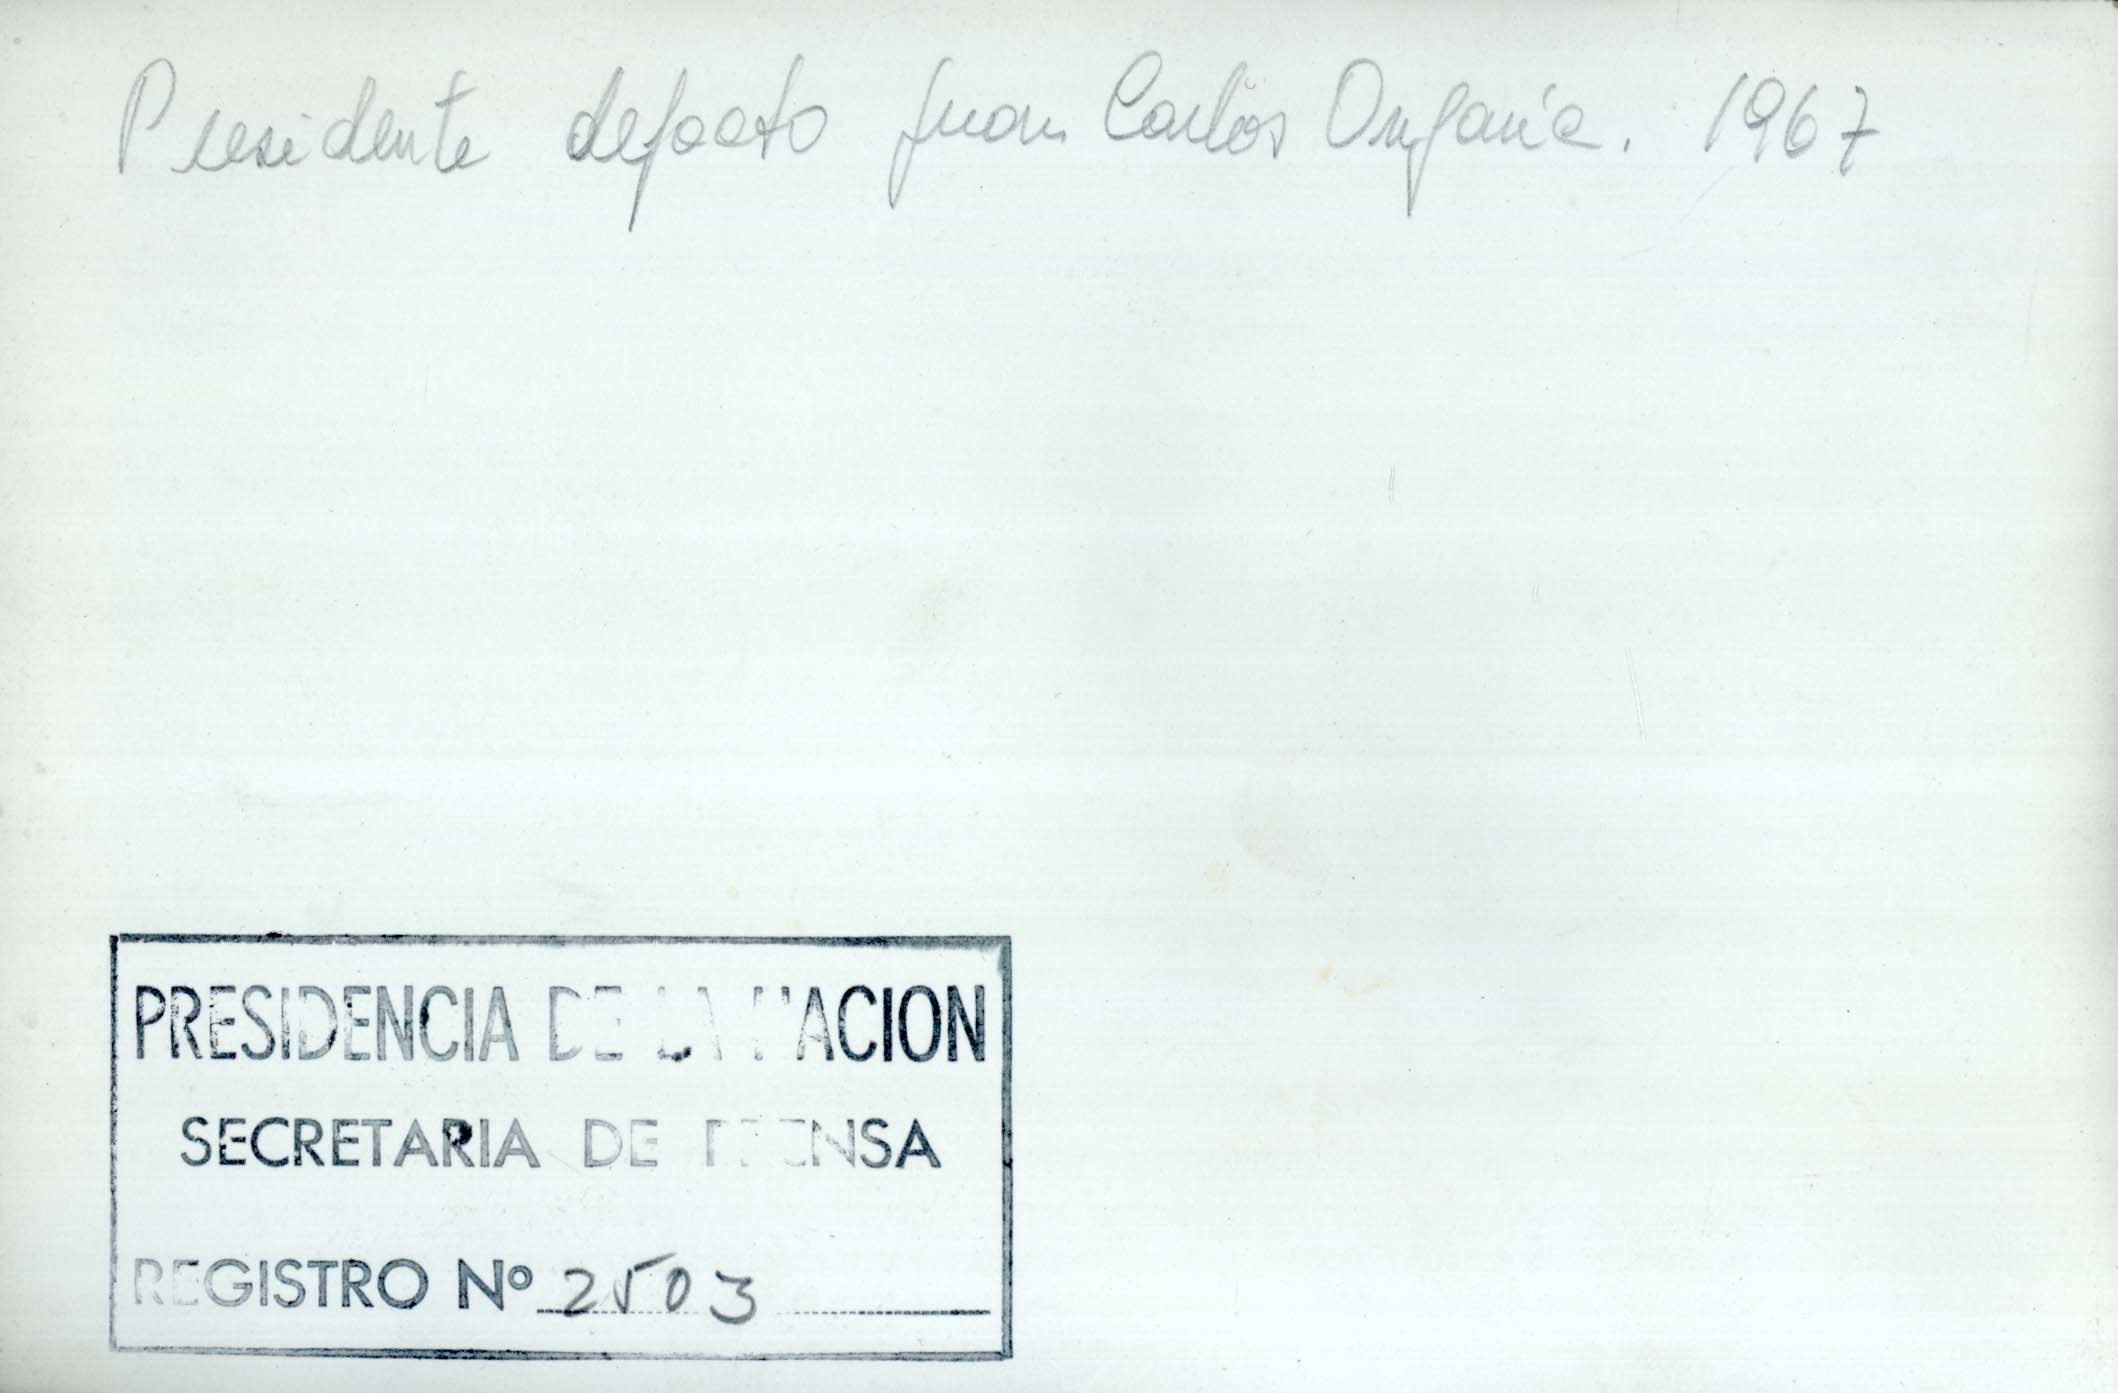 Presidente defacto Juan Carlos Onganía. 1967
PRESIDENCIA DE LA NACION
SECRETARIA DE PRENSA
REGISTRO Nº 2503